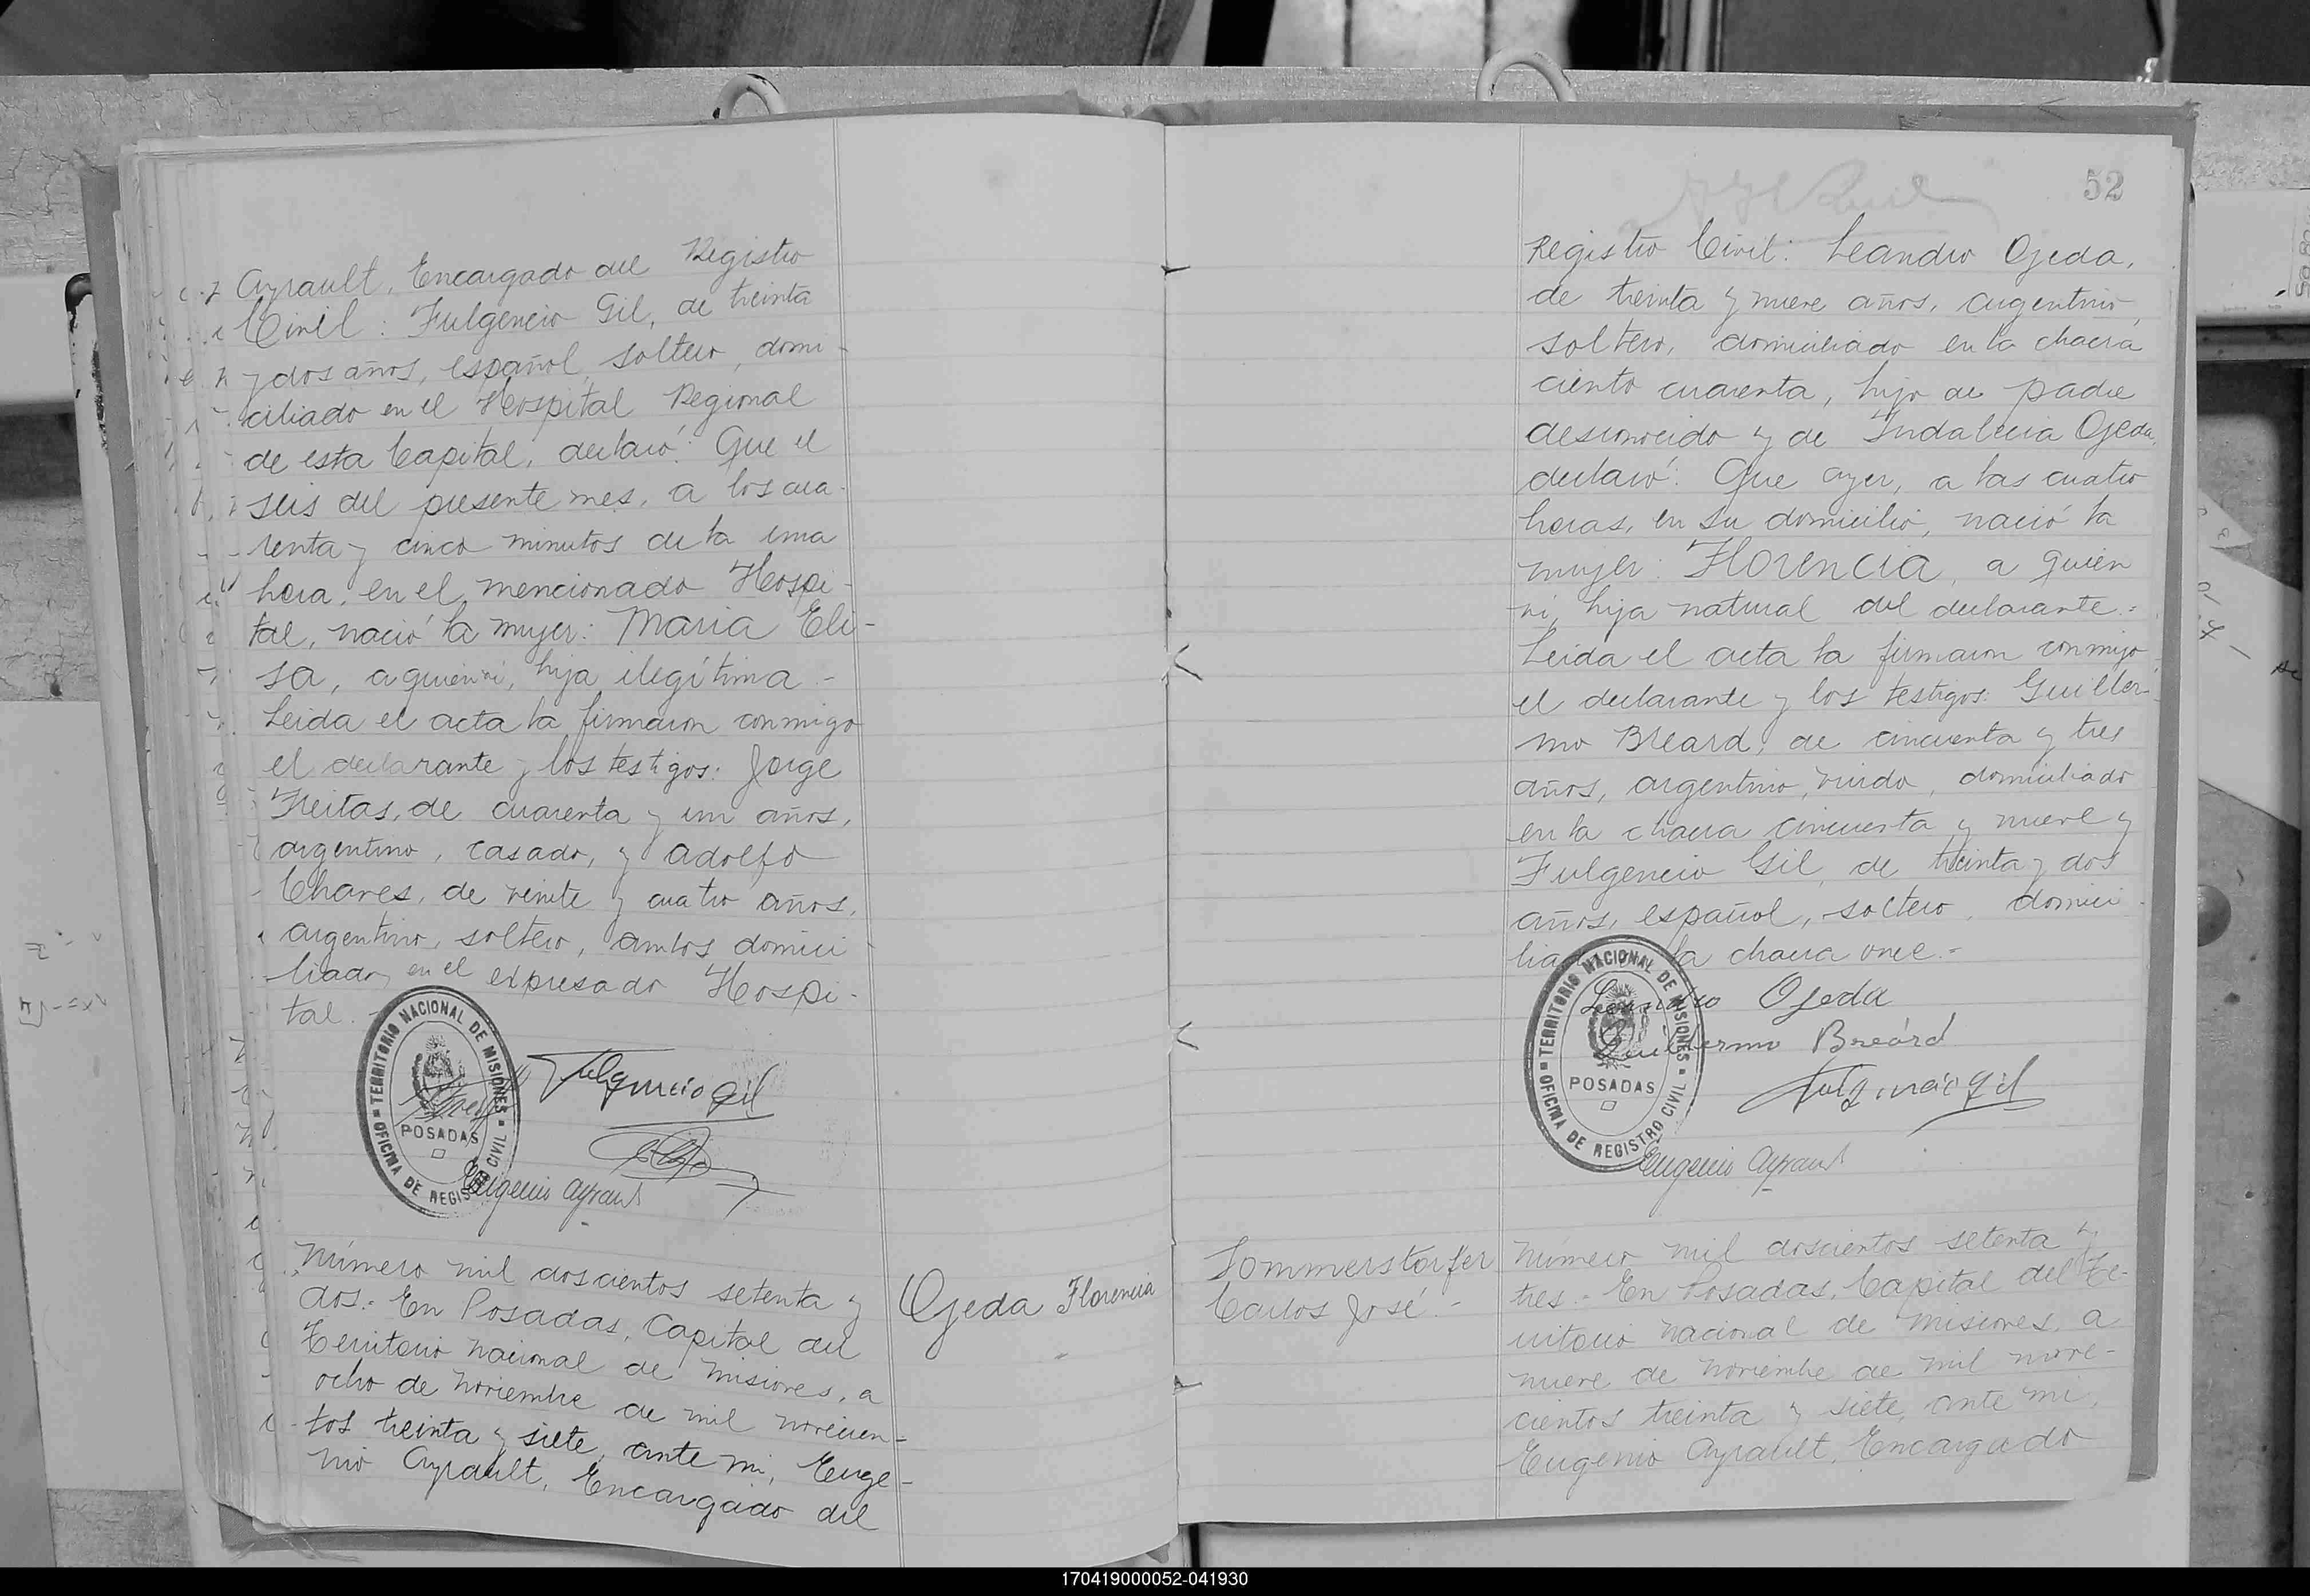 Ayrault, Encargado del Registro
Civil: Fulgencio Gil, de treinta
y dos años, español, soltero, domi-
ciliado en el Hospital Regional
de esta Capital, declaró: Que el
seis del presente mes, a los cua-
renta y cinco minutos de la una
hora, en el mencionado Hospi-
tal, nació la mujer: Maria Eli-
sa, a quien vi, hija ilegítima.-
Leida el acta la firmaron conmigo
el declarante y los testigos: Jorge
Freitas, de cuarenta y un años,
argentino, casado, y Adolfo
Chaves, de veinte y cuatro años,
argentino, soltero, ambos domici
liados en el expresado Hospi-
tal.-
TERRITORIO NACIONAL DE MISIONES
POSADAS
OFICINA DE REGISTRO CIVIL
Fulgencio Gil
Eugenio Ayrault
Número mil doscientos setenta y
dos.- En Posadas, Capital del
Territorio Nacional de Misiones, a
ocho de Noviembre de mil novecien-
tos treinta y siete, ante mi, Euge-
nio Ayrault, Encargado del
Ojeda Florencia
52
Registro Civil: Leandro Ojeda,
de treinta y nueve años, argentino,
soltero, domiciliado en la chacra
ciento cuarenta, hijo de padre
desconocido y de Indalecia Ojeda,
declaró: Que ayer, a las cuatro
horas, en su domicilio, nació la
mujer: Florencia, a quien
vi, hija natural del declarante.-
Leida el acta la firmaron conmigo
el declarante y los testigos: Guiller-
mo Breard, de cincuenta y tres
años, argentino, viudo, domiciliado
en la chacra cincuenta y nueve y
Fulgencio Gil, de treinta y dos
años, español, soltero, domici
la chacra once.-
Leandro Ojeda
Guillermo Breárd
Fulgencio Gil
TERRITORIO NACIONAL DE MISIONES
POSADAS
OFICINA DE REGISTRO CIVIL
Eugenio Ayrault
Sommerstorfer
Carlos José.-
Número mil doscientos setenta y
tres.- En Posadas, Capital del Te-
rritorio Nacional de Misiones, a
nueve de Noviembre de mil nove-
cientos treinta y siete, ante mi,
Eugenio Ayrault, Encargado
170419000052-041930